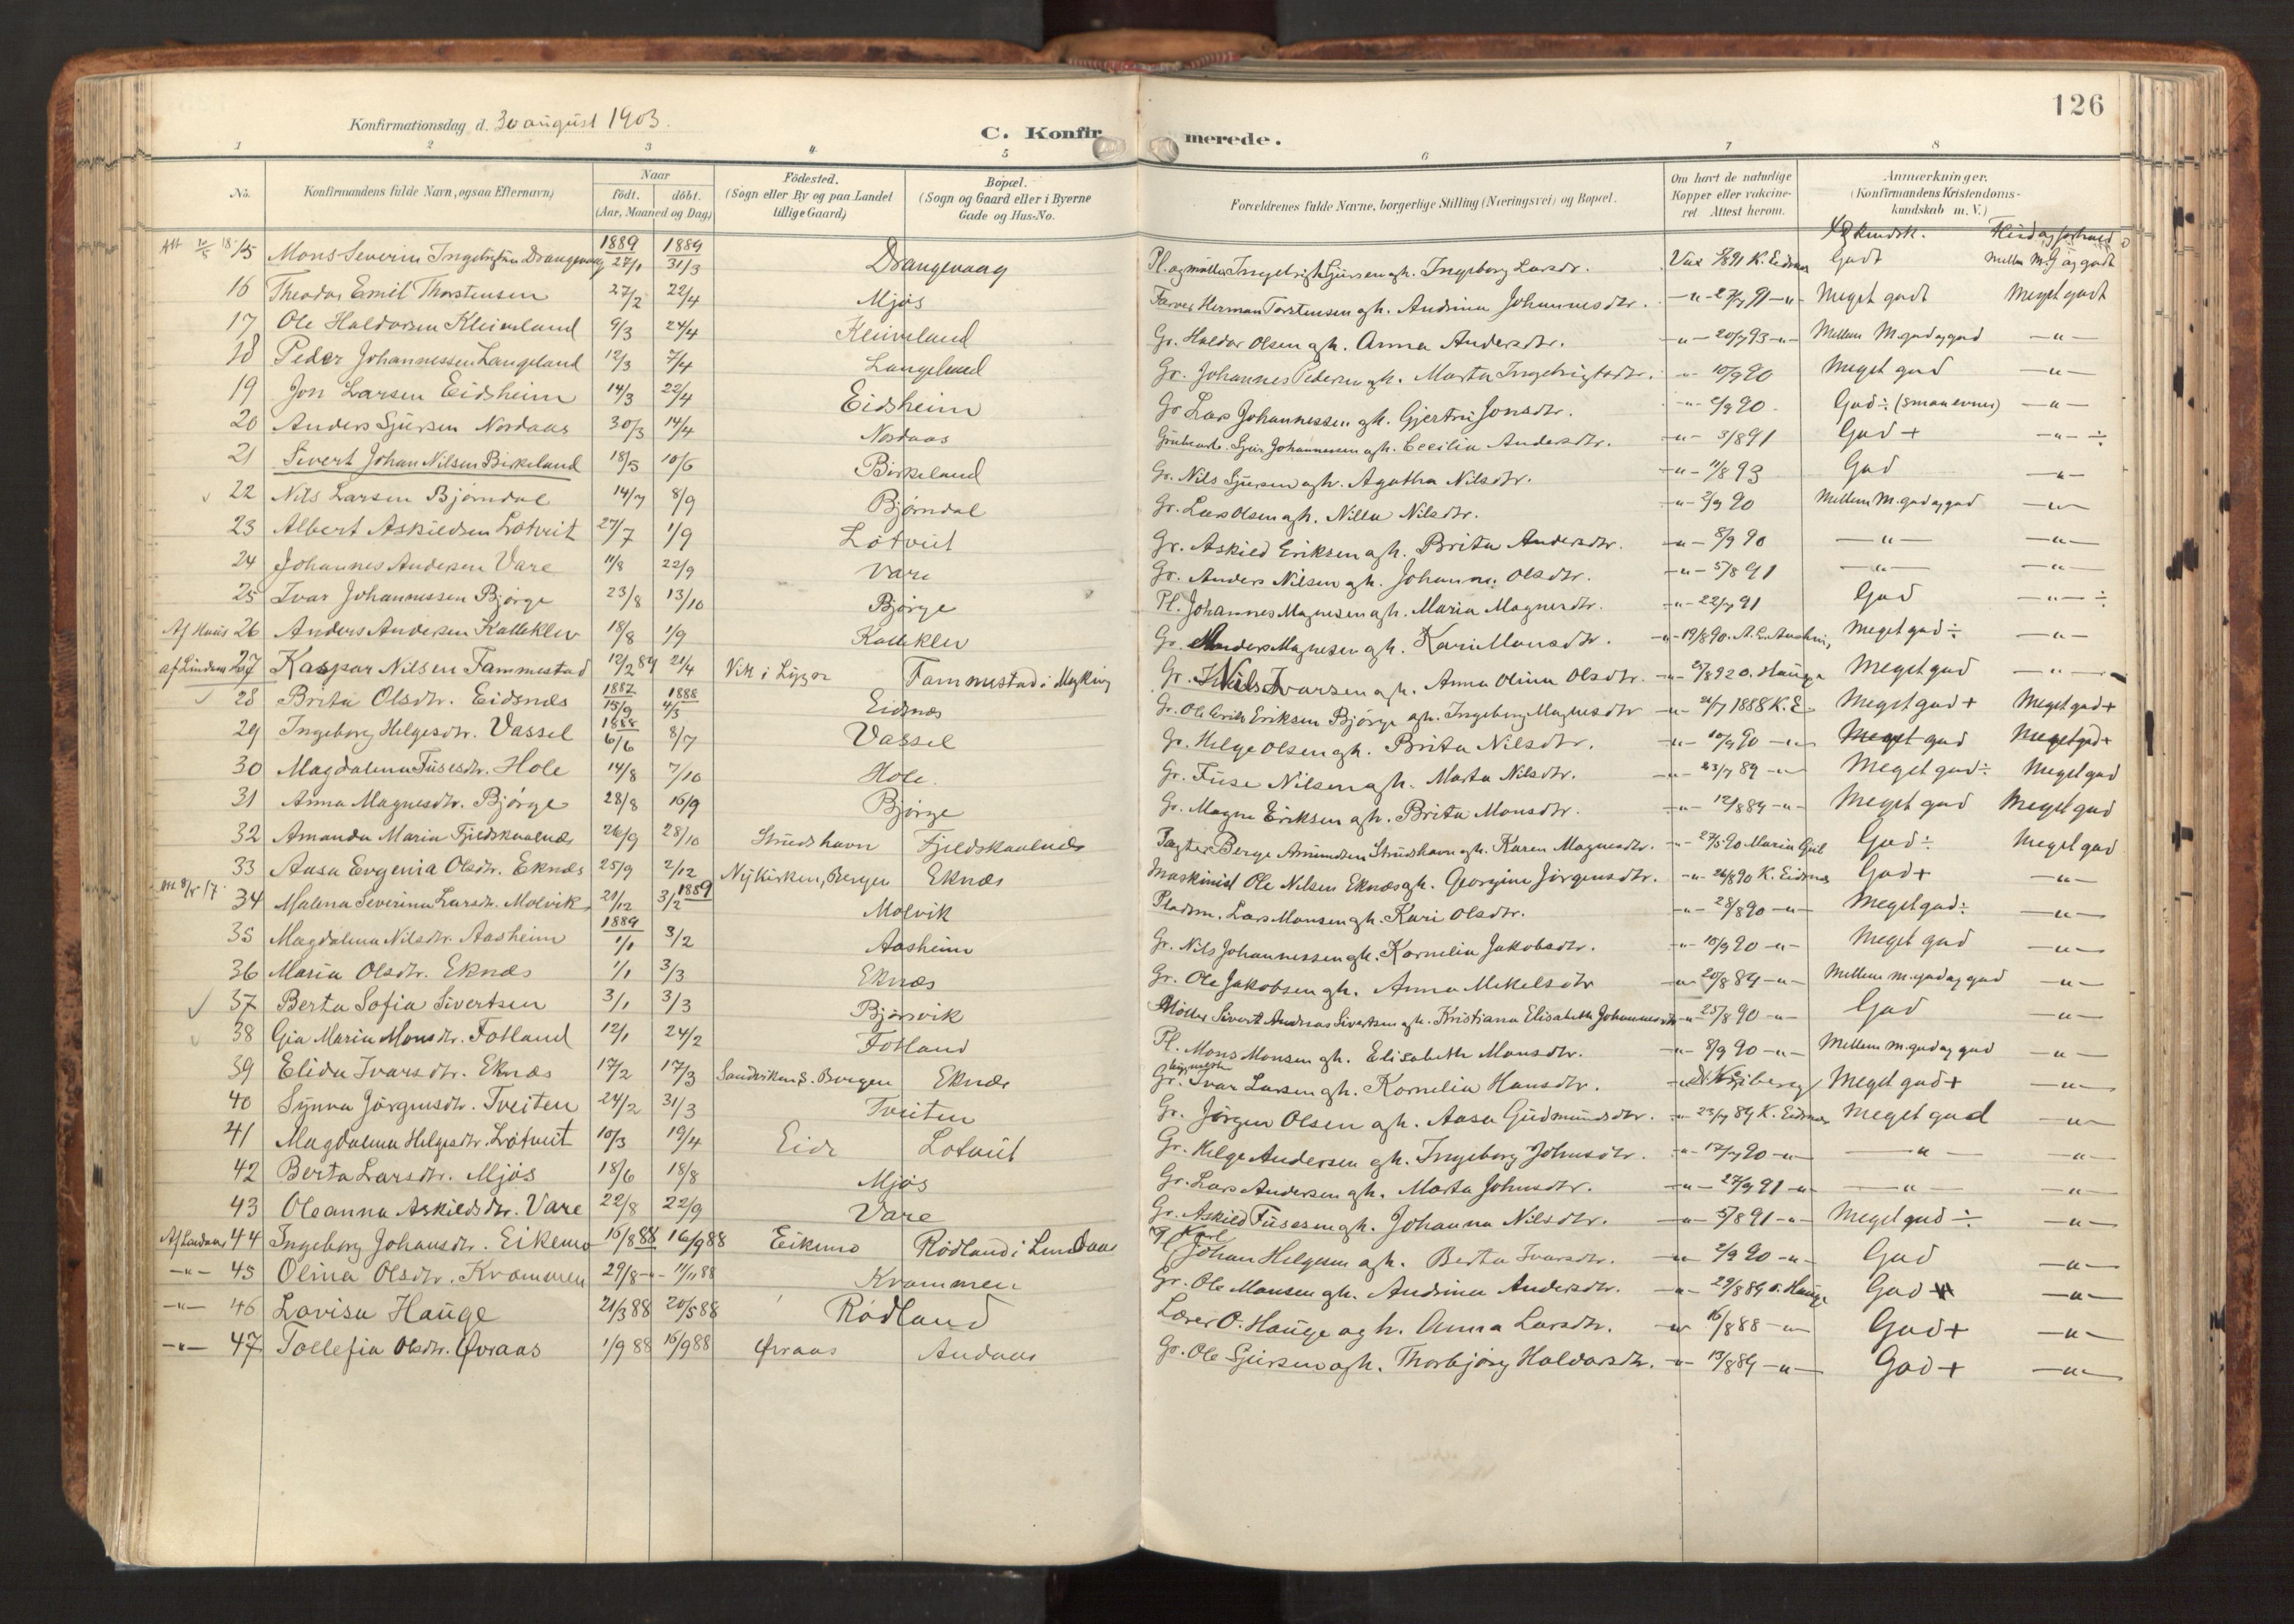 126
Konfirmationsdag d. 30 august 1903.
C. Konfirmerede.
1 2 3 4 5 6 7 8
No. Konfirmandens fulde Navn, ogsaa Efternavn) Naar født. døbt. (Aar, Maaned og Dag) Födested. (Sogn eller By og paa Landet tillige Gaard) Bopæl. (Sogn og Gaard eller i Byerne Gade og Hus-No. Forældrenes fulde Navne, borgerlige Stilling (Næringsvei) og Bopæl. Om havt de naturlige Kopper eller vakcineret Attest herom. Anmærkninger. (Konfirmandens Kristendomskundskab m. V.)
15 Mons Severin Drangevaag 1889 27/1 1889 31/3 Drangevaag Ingeborg Larsdr. K. Eidsnes Godt
16 Theodor Emil Thorstensen 27/2 22/4 Mjøs Herman Torstensen gh. Andrina Johannesdtr. -"- 27/7 91 -"- Meget godt Meget godt
17 Ole Haldorsen Kleiveland 9/3 24/4 Kleiveland Gr. Haldor Olsen gh. Anna Andersdtr. -"- 20/7 93 -"- Mellem M.god og god -"-
18 Peder Johannessen Langeland 12/3 7/4 Langeland Gr. Johannes Pedersen gh. Marta Ingebrigtsdtr. -"- 10/9 90 Meget god -"-
19 Jon Larsen Eidsheim 14/3 22/4 Eidsheim Gr Lars Johannessen gh. Gjertru Jonsdtr. -"- 2/9 90 God ÷ (smaa evner) -"-
20 Anders Sjursen Nordaas 30/3 14/4 Nordaas Sjur Johannessen gh. Cecilia Andersdtr. -"- 3/8 91 God + -"- ÷
21 Sivert Johan Nilsen Birkeland 18/5 10/6 Birkeland Gr. Nils Sjursen gh. Agatha Nilsdtr. -"- 11/8 93 God -"-
22 Nils Larsen Bjørndal 14/7 8/9 Bjørndal Gr. Lars Olsen gh. Nilla Nilsdtr. -"- 2/9 90 Mellem M.god og god -"-
23 Albert Askildsen Løtveit 27/7 1/9 Løtveit Gr. Askild Eriksen gh. Brita Andersdtr. -"- 8/9 90 -"- -"-
24 Johannes Andersen Vare 11/8 22/9 Vare Gr. Anders Nilsen gh. Johanna Olsdtr. -"- 5/8 91 -"- -"-
25 Ivar Johannessen Bjørge 23/8 13/10 Bjørge Pl. Johannes Magnesen gh. Maria Magnesdtr. -"- 22/7 91 God -"- ÷
Af Haus 26 Anders Andersen Kalleklev 18/8 1/9 Kalleklev Gr. Anders Magnesen gh. Kari Monsdtr. -"- 19/8 90. Meget god ÷ -"-
af Lindaas 27 Kaspar Nilsen Fammestad 12/2 89 21/4 Vik i Fammestad i Gr. Nils Ivarsen gh. Anna Olina Olsdtr. -"- 25/8 92 O. Hauge Meget god -"-
28 Brita Olsdtr. Eidsnes 1887 15/9 1888 4/3 Eidsnes Gr. Ole Eriksen Bjørge gh. Ingeborg Magnesdtr -"- 1888 K. E Meget god + Meget god +
29 Ingeborg Helgesdtr. Vassel 1888 6/6 8/7 Vassel Gr. Helge Olsen gh. Brita Nilsdtr. -"- 10/9 90 -"- Meget god Meget god +
30 Magdalena Fusesdtr. Hole 14/8 7/10 Hole. Gr. Fuse Nilsen gh. Marta Nilsdtr. -"- 23/7 89 -"- Meget god ÷ Meget god
31 Anna Magnesdtr. Bjørge 28/8 16/9 Bjørge Gr. Magne Eriksen gh. Brita Monsdtr. -"- 12/8 89 -"- Meget god Meget god
32 Amanda Maria Fjeldskaalnes 26/9 28/10 Strudshavn Fjeldskaalnes Berge Amundsen Strudshavn gh. Karen Magnesdtr. -"- 27/5 90 Maria God ÷ Meget god
33 Aasa Evgenia Olsdtr. Eknes 25/9 2/12 Nykirken, Bergen Eknes Maskinist Ole Nilsen Eknes gh. Georgine Jørgensdtr. -"- 26/8 90 K. Eidsnes God + -"-
34 Malena Severina Larsdtr. Molvik 21/12 3/2 1889 Molvik Pladsm. Lars Monsen gh. Kari Olsdtr. -"- 28/8 90 -"- Meget god ÷ -"-
35 Magdalena Nilsdtr. Aasheim 1889 1/1 3/2 Aasheim Gr. Nils Johannessen gh. Kornelia Jakobsdtr. -"- 10/9 90 -"- Meget god -"-
36 Maria Olsdtr. Eknes 1/1 3/3 Eknes Gr. Ole Jakobsen gh. Anna Mikelsdtr -"- 20/8 89 -"- Mellem m.god og god -"-
37 Berta Sofia Sivertsen 3/1 3/3 Bjørsvik Møller Sivert Andreas Sivertsen gh. Kristiana Elisabeth Johannesdtr -"- 25/8 90 -"- God -"-
38 Gia Maria Monsdtr. Fotland 12/1 24/2 Fotland Pl. Mons Monsen gh. Elisabeth Monsdtr. -"- 8/9 90 -"- Mellem m.god og god -"-
39 Elida Ivarsdtr. Eknes 17/2 17/3 Sandviken S. Bergen Eknes Ivar Larsen gh. Kornelia Hansdtr. Meget god + -"-
40 Synva Jörgensdtr. Tveiten 24/2 31/3 Tveiten Gr. Jörgen Olsen gh. Aasa Gudmundsdtr. -"- 23/7 89 K. Eidsnes Meget god -"-
41 Magdalena Helgesdtr. Løtveit 10/3 19/4 Eide Løtveit Gr. Helge Andersen gh. Ingeborg Johnsdtr. -"- 17/7 90 -"- -"- -"-
42 Berta Larsdtr. Mjøs 18/6 18/8 Mjøs Gr. Lars Andersen gh. Marta Johnsdtr. -"- 27/7 91 -"- -"- -"-
43 Oleanna Askildsdtr. Vare 22/8 22/9 Vare Gr. Askild Fusesen gh. Johanna Nilsdtr. -"- 5/8 91 -"- Meget god ÷ -"-
Af Lindaas 44 Ingeborg Johansdtr. Eikemo 15/8 88 16/9 88 Eikemo Rødland i Lindaas Karl Johan Helgesen gh. Berta Ivarsdtr. -"- 2/9 90 -"- God -"-
-"- 45 Olina Olsdtr. Krammen 29/8 -"- 11/11 88 Krammen Gr. Ole Monsen gh. Andrina Andersdtr. -"- 29/8 89 O. Hauge God + -"-
-"- 46 Lovisa Hauge 21/3 88 20/5 88 Rødland Lærer O. Hauge og h. Anna Larsdtr. -"- 16/8 88 -"- God + -"-
-"- 47 Tollefia Olsdtr. Qvraas 1/9 88 16/9 88 Qvraas Andaas Gr. Ole Sjursen gh. Thorbjørg Haldorsdtr. -"- 13/8 89 -"- God + -"-